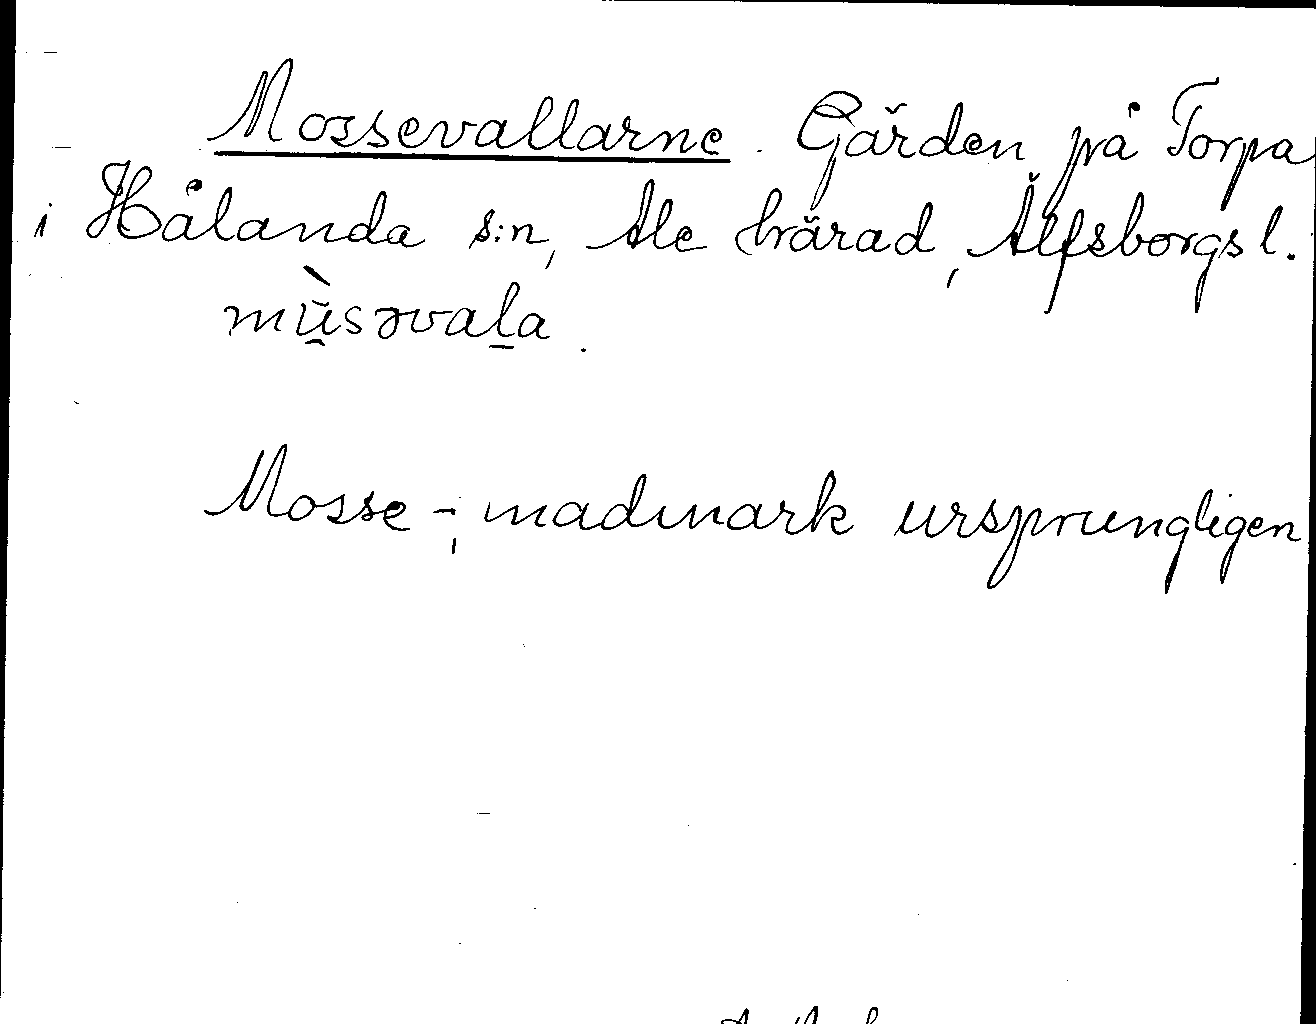 Mossevallarne. Gärden på Torpa
i Hålanda s:n, Ale härad, Älfsborgs l.
mùsəvaḻa.
Mosse-, madmark ursprungligen